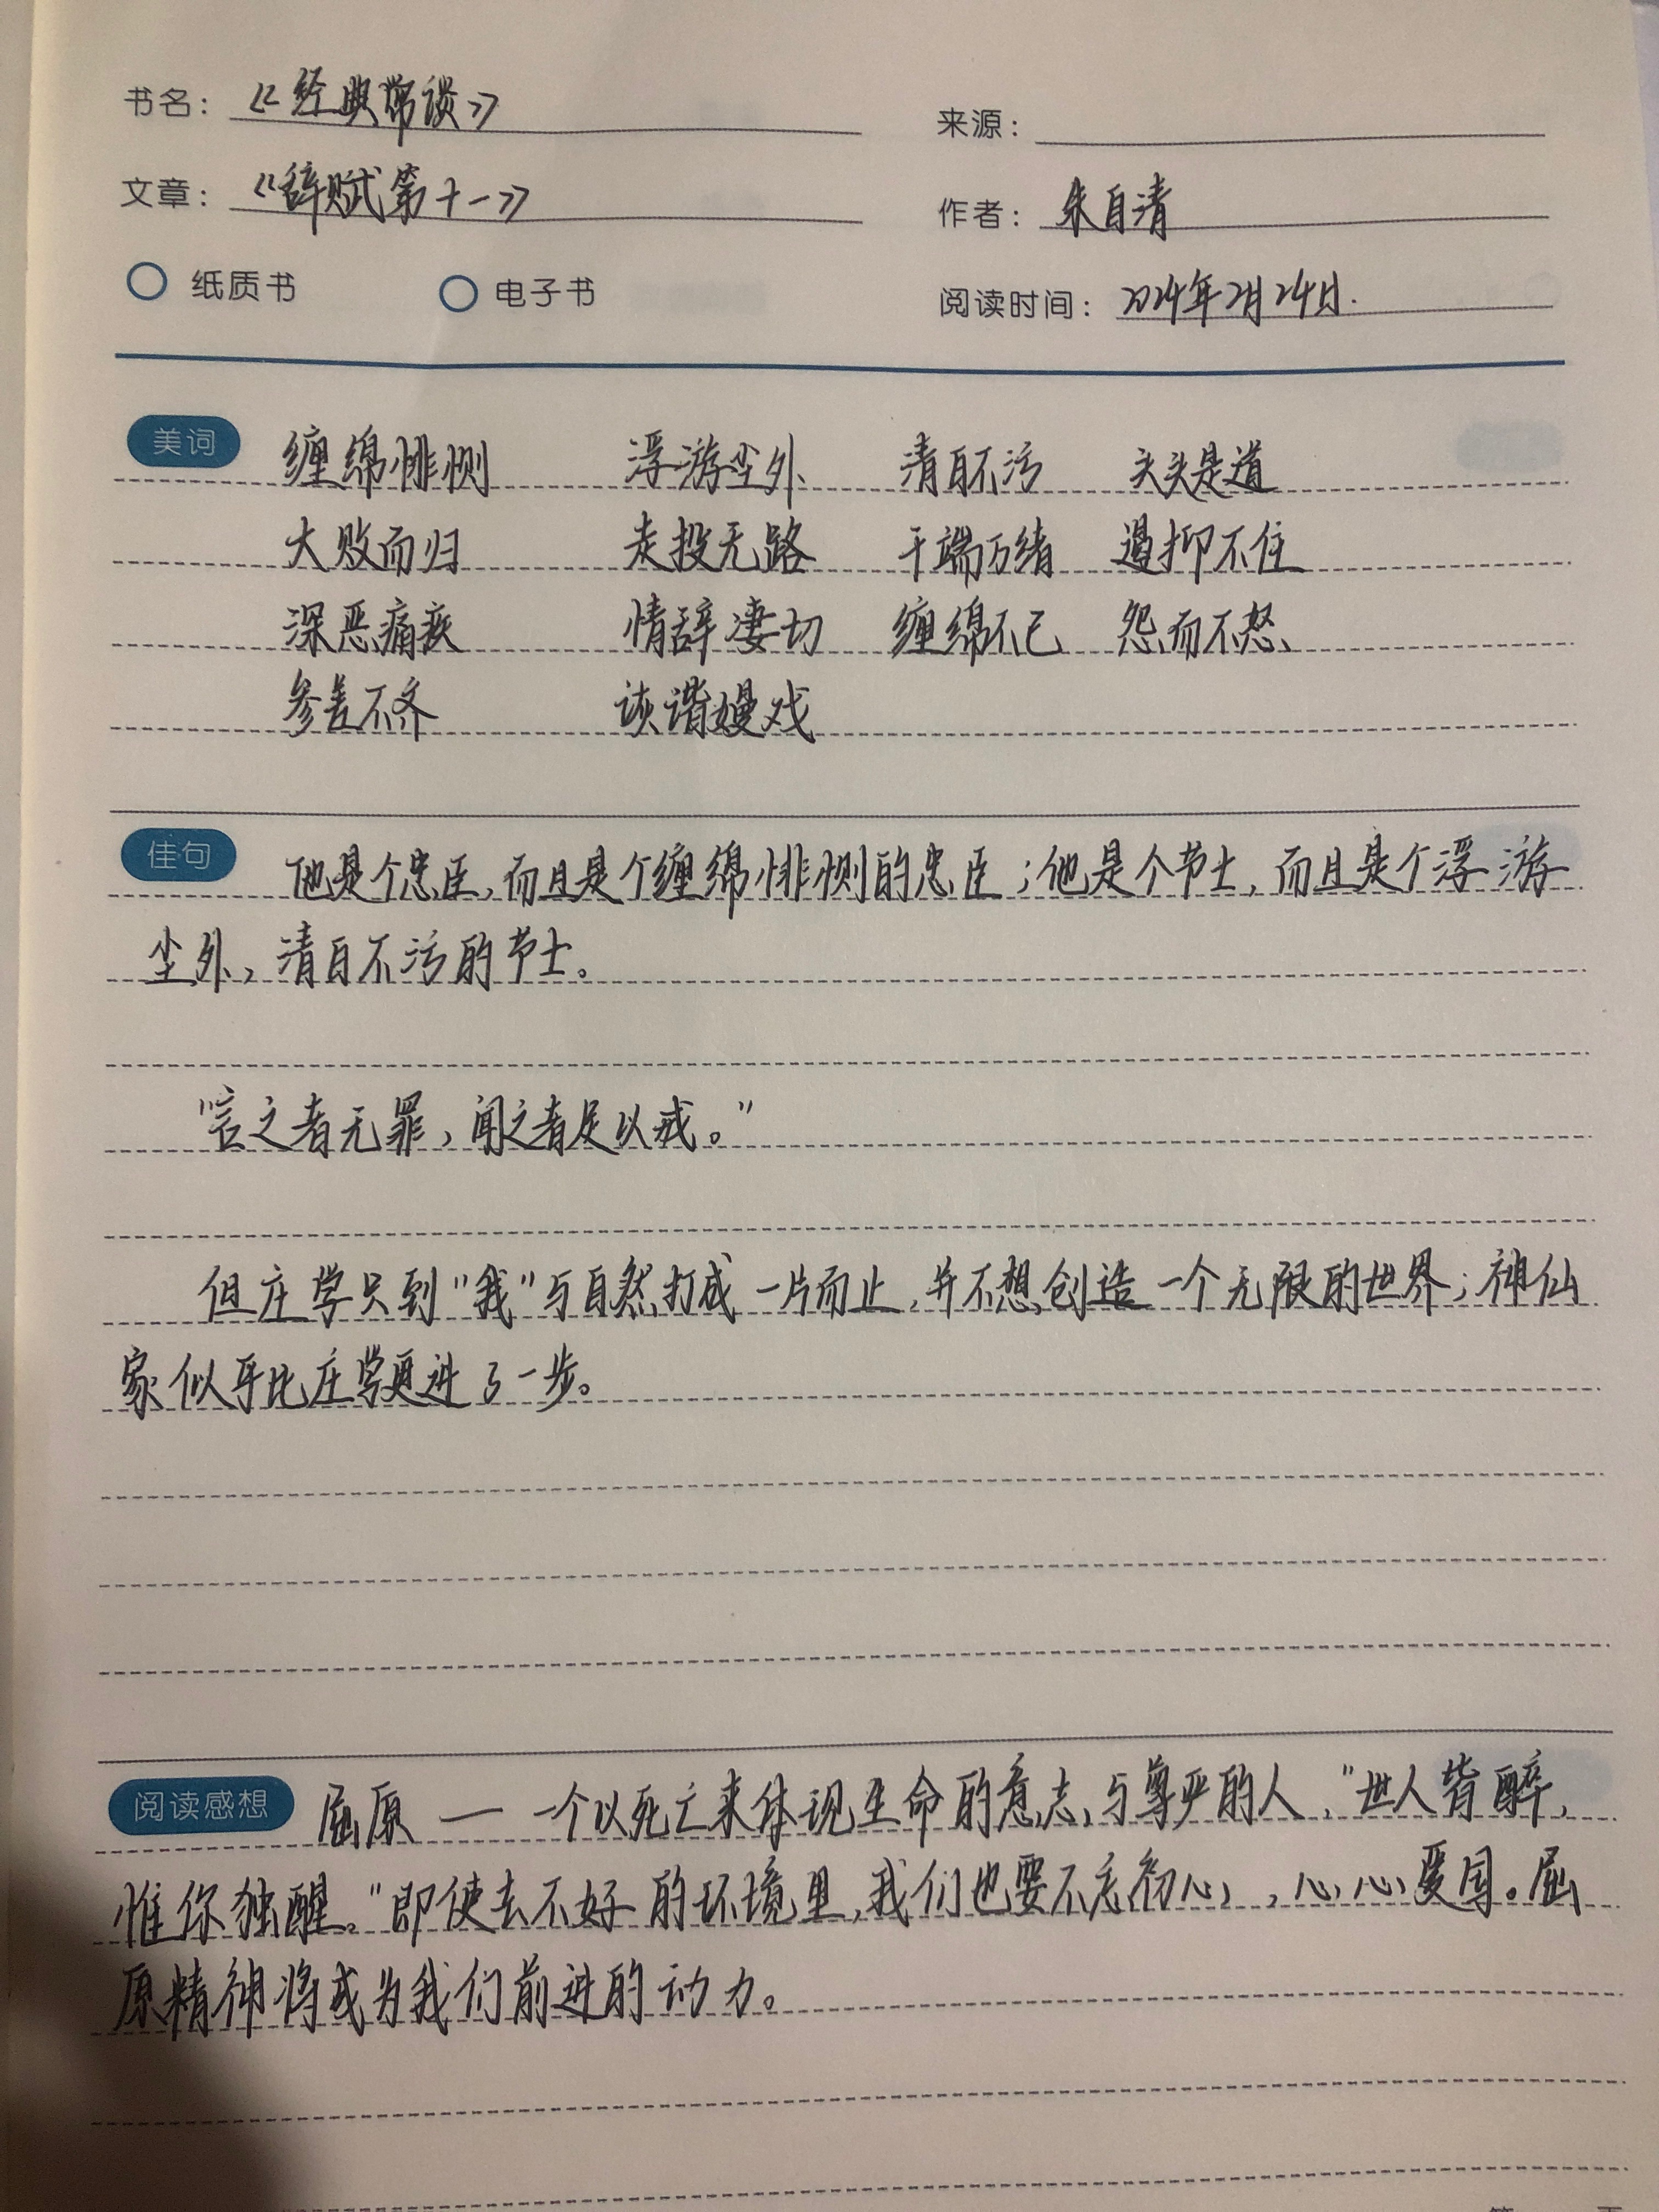 书名：《经典常谈》
来源：
文章：《辞赋第十一》
作者：朱自清
纸质书 电子书
阅读时间：2024年2月24日.
美词 缠绵悱恻 浮游尘外 清白不污 头头是道
大败而归 走投无路 千端万绪 遏抑不住
深恶痛疾 情辞凄切 缠绵不已 怨而不怒
参差不齐 诙谐嫚戏
佳句 他是个忠臣,而且是个缠绵悱恻的忠臣;他是个节士,而且是个浮游
尘外,清白不污的节士。
"言之者无罪,闻之者足以戒。"
但庄学只到"我"与自然打成一片而止,并不想创造一个无限的世界;神仙
家似乎比庄学更进了一步。
阅读感想 屈原 — 一个以死亡来体现生命的意志与尊严的人,"世人皆醉,
惟你独醒。"即使去不好的环境里,我们也要不忘初心,心心爱国。屈
原精神将成为我们前进的动力。